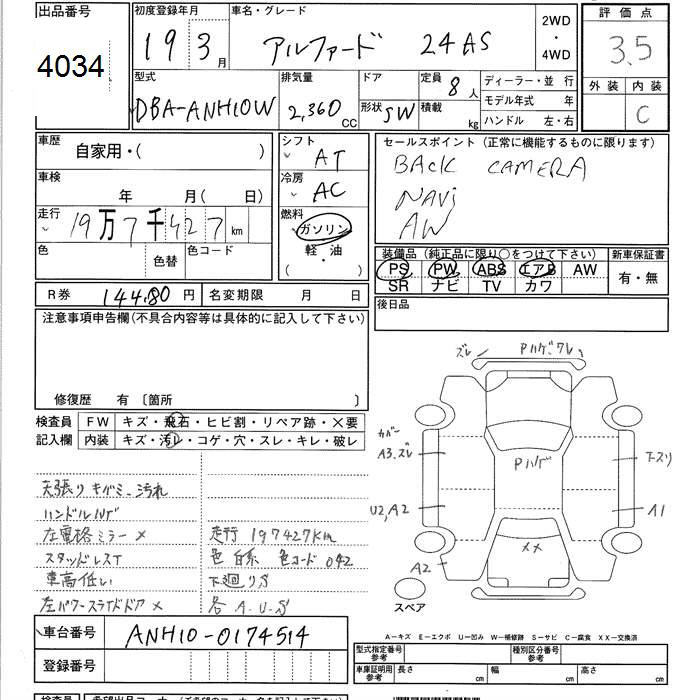 出品番号
4034
初度登録年月
19 3月
車名・グレード
アルファード 24AS
2WD
・
4WD
評価点
3.5
外装 内装
C
型式
DBA-ANH10W
排気量
2,360CC
ドア
形状 SW
定員 8人
積載 kg
ディーラー・並行
モデル年式 年
ハンドル 左・右
車歴
自家用・( )
車検
年 月( 日)
走行
19万7千427km
色 色替 色コード
シフト
AT
冷房
AC
燃料
ガソリン
軽・油
( )
セールスポイント(正常に機能するものに限ります)
BACK CAMERA
NAVi
AW
装備品(純正品に限り○をつけて下さい)
PS PW ABS エアB AW
SR ナビ TV カワ
新車保証書
有・無
R券 14480円
名変期限 月 日
後日品
注意事項申告欄(不具合内容等は具体的に記入して下さい)
修復歴 有〔箇所 〕
検査員
記入欄
FW キズ・飛石・ヒビ割・リペア跡・×要
内装 キズ・汚レ・コゲ・穴・スレ・キレ・破レ
天張りキバミ、汚れ
ハンドルハゲ
左電格ミラー×
スタッドレスT
車高低い
左パワースライドドア×
走行 197427km
色 白系 色コード 042
下廻りS
各A.U.S
ズレ
Pハゲ、ワレ
カバー
A3.ズレ
Pハゲ
U2,A2
A1
××
A2
スペア
A−キズ E−エクボ U−凹み W−補修跡 S−サビ C−腐食 XX−交換済
車台番号
ANH10-0174514
登録番号
型式指定番号
参考
種別区分番号
参考
車庫証明用
参考
長さ cm
幅 cm
高さ cm